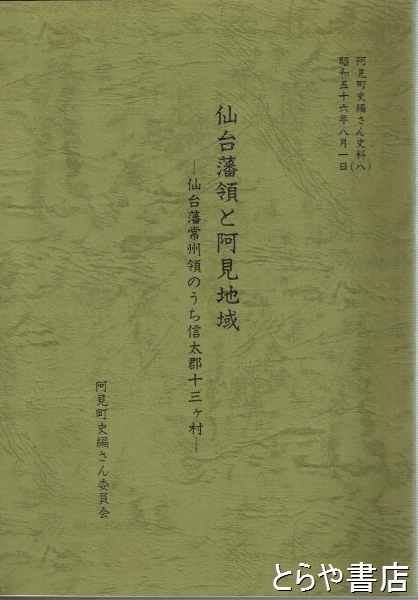 阿見町史編さん史料(八)
昭和五十六年八月一日
仙台藩領と阿見地域
―仙台藩常州領のうち信太郡十三ヶ村―
阿見町史編さん委員会
とらや書店